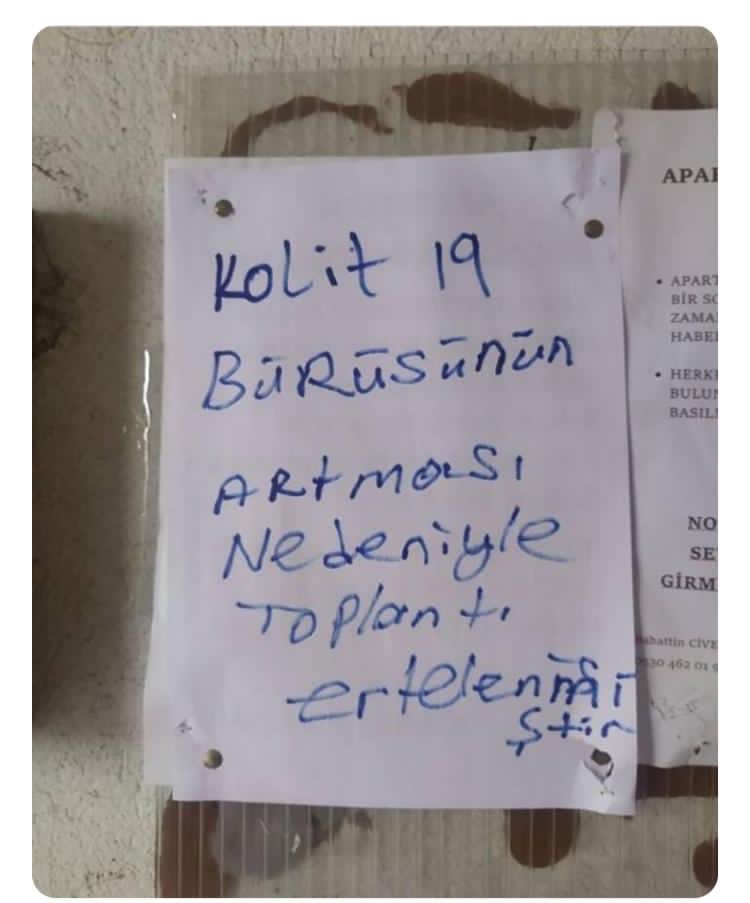 Kolit 19
BÜRÜSÜNÜN
ARtmaSI
Nedeniyle
TOPlantı
ertelenmi
ştir
APAR
• APART
BİR SO
ZAMA
HABE
• HERK
BULUN
BASIL
NO
SE
GİRM
ahattin CİVE
0530 462 01 9